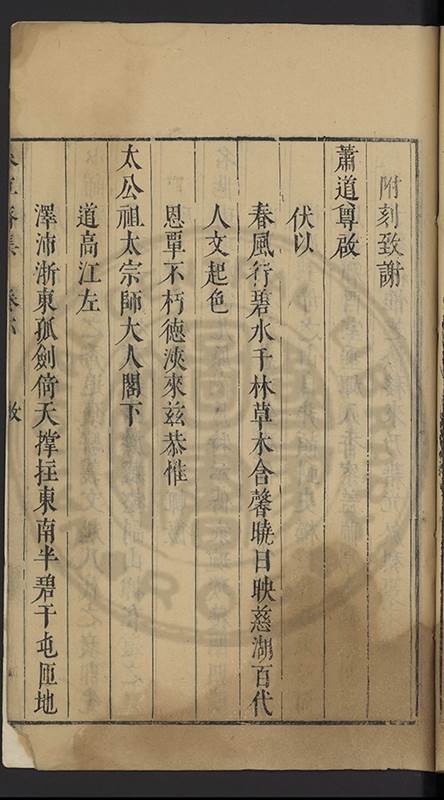 附刻致謝
蕭道尊啟
伏以
春風行碧水千林草木含馨曉日映慈湖百代
人文起色
恩覃不朽德浹來兹恭惟
太公祖太宗師大人閣下
道高江左
澤沛浙東孤劍倚天撐拄東南半碧千屯匝地
集 卷六